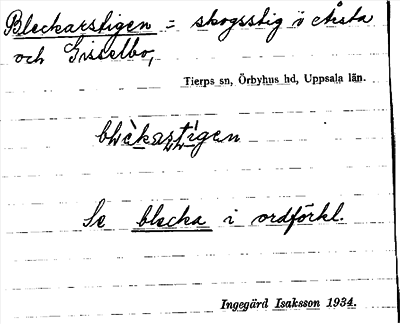 Bleckarstigen = skogsstig i Åsta
och Gisselbo,
Tierps sn, Örbyhus hd, Uppsala län.
Se blecka i ordförkl.
Ingegärd Isaksson 1934.